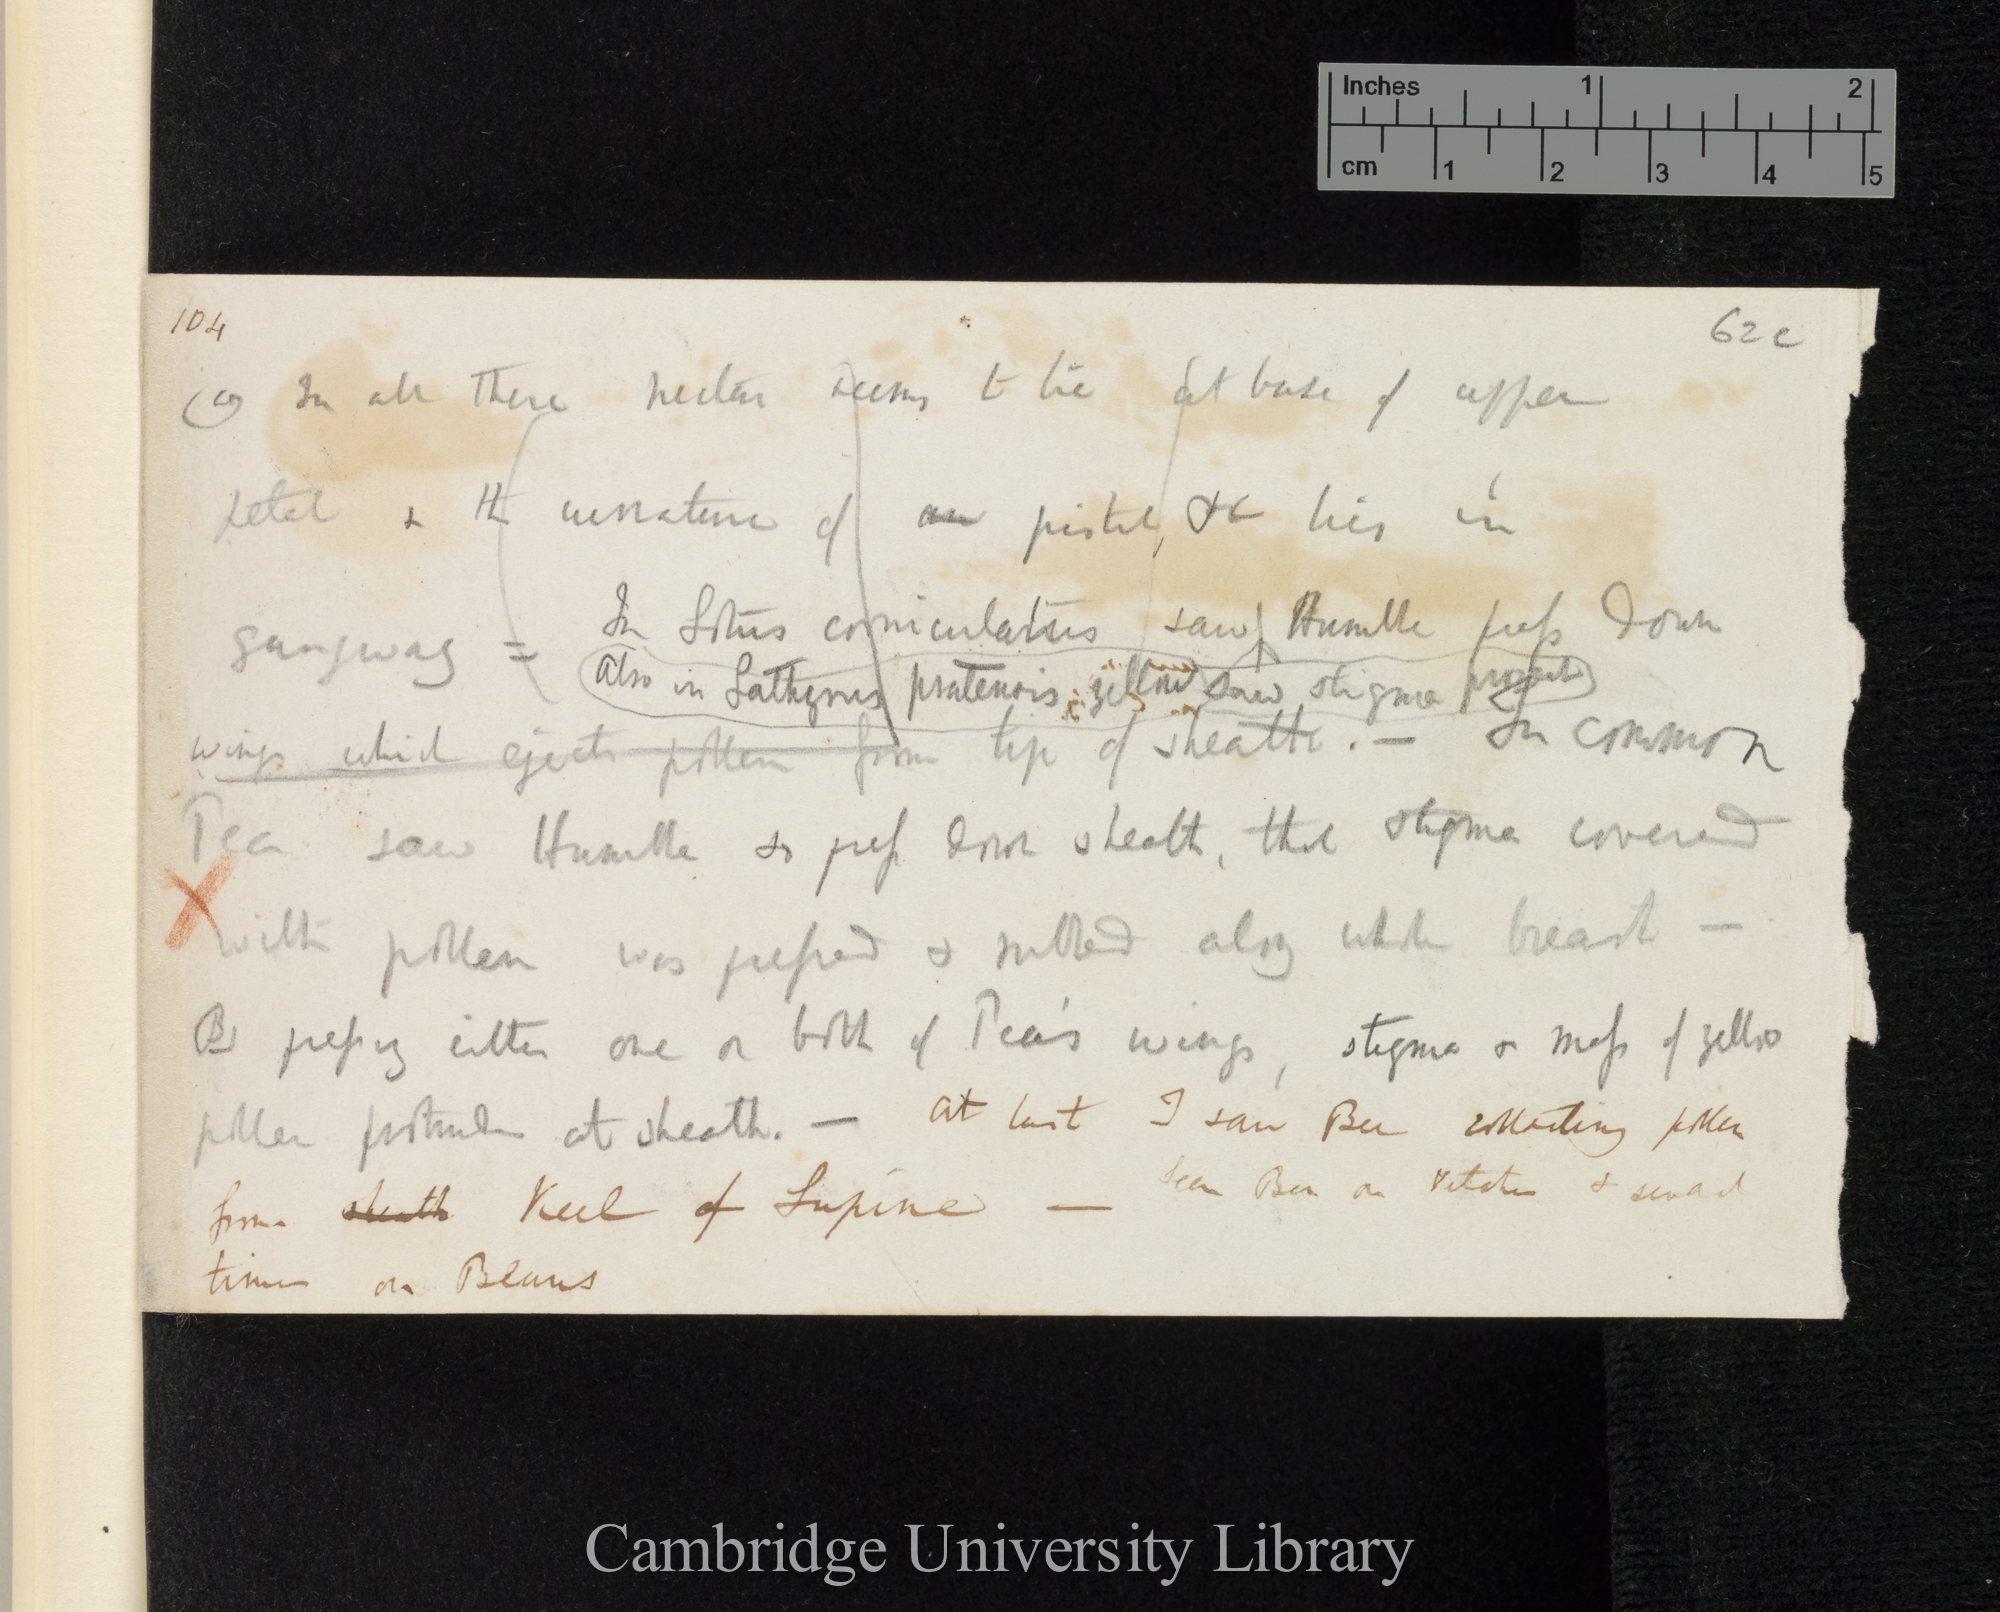 Inches 1 2
cm 1 2 3 4 5
104
62 c
(a) In all these nectar seems to lie at base of upper
petal & the curvature of pistil, &c lies in
gangway = In Lotus corniculatus saw Humble press down
also in Lathyrus pratensis yellow saw stigma
wings which ejects pollen from tip of sheath. — In common
Pea saw Humble so press down sheath, that stigma covered
with pollen was pressed & rubbed along whole breast —
By pressing either one or both of Pea's wings, stigma & mass of yellow
pollen protrudes at sheath. — At last I saw Bee collecting pollen
from sheath Keel of Lupine — Seen Bee on Vetches & several
times on Beans
Cambridge University Library